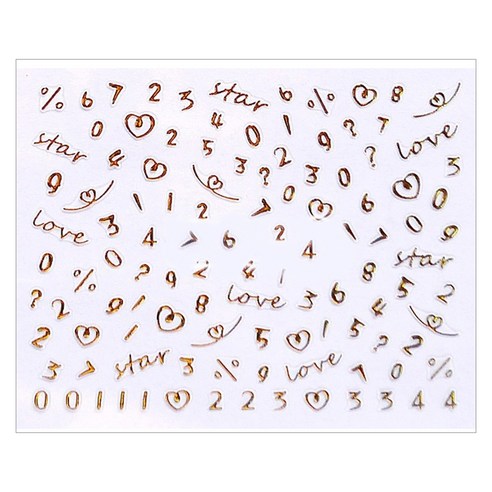 % 6 7 2 3 star 6 % 8
0 2 4 0 1 9 7 2 love
star 4 5 3 ? 2 3 0 ? 3
9 1 1 2 7 0 6 4 0
love 3 4 7 6 2 1 7 0 9
0 % ? 9 2 4 1 8 star
? 2 9 1 8 love 3 6 8 5 2
2 0 5 1 5 4 2
3 7 star 3 % 9 love 7 0 %
0 0 1 1 1 2 2 3 3 3 4 4